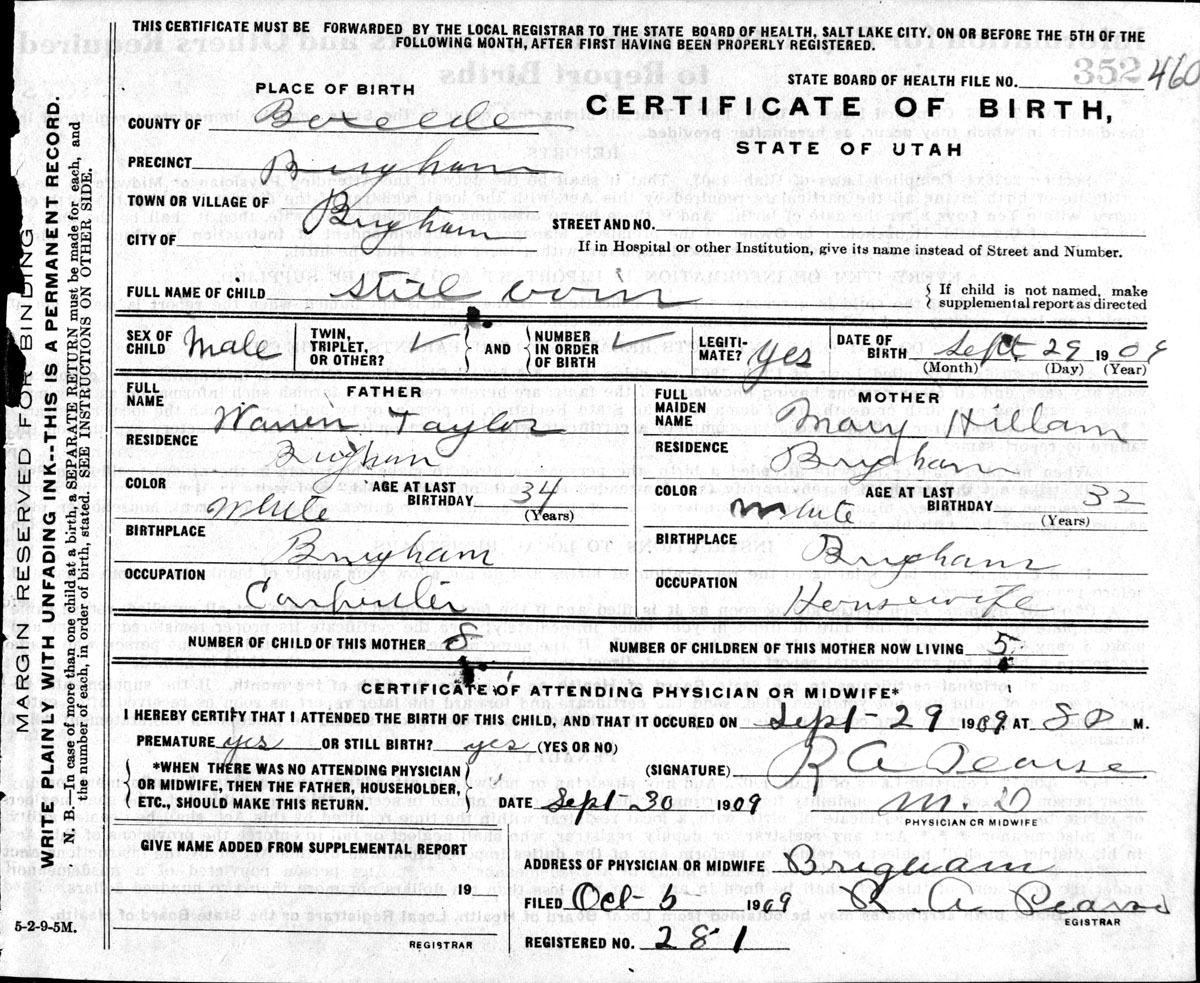 THIS CERTIFICATE MUST BE FORWARDED BY THE LOCAL REGISTRAR TO THE STATE BOARD OF HEALTH, SALT LAKE CITY, ON OR BEFORE THE 5TH OF THE
FOLLOWING MONTH, AFTER FIRST HAVING BEEN PROPERLY REGISTERED.
352
STATE BOARD OF HEALTH FILE NO. 460
PLACE OF BIRTH
CERTIFICATE OF BIRTH,
STATE OF UTAH
COUNTY OF
PRECINCT Brigham
TOWN OR VILLAGE OF
CITY OF Brigham
STREET AND NO.
If in Hospital or other Institution, give its name instead of Street and Number.
FULL NAME OF CHILD Still born
If child is not named, make
supplemental report as directed
SEX OF CHILD Male
TWIN, TRIPLET, OR OTHER?
AND
NUMBER IN ORDER OF BIRTH
LEGITI-MATE? yes
DATE OF BIRTH Sept 29 1909
(Month) (Day) (Year)
FATHER
FULL NAME Warren Taylor
RESIDENCE Brigham
COLOR White
AGE AT LAST BIRTHDAY 34
(Years)
BIRTHPLACE Brigham
OCCUPATION Carpenter
MOTHER
FULL MAIDEN NAME Mary
RESIDENCE Brigham
COLOR White
AGE AT LAST BIRTHDAY 32
(Years)
BIRTHPLACE Brigham
OCCUPATION Housewife
NUMBER OF CHILD OF THIS MOTHER 8
NUMBER OF CHILDREN OF THIS MOTHER NOW LIVING 5
CERTIFICATE OF ATTENDING PHYSICIAN OR MIDWIFE*
I HEREBY CERTIFY THAT I ATTENDED THE BIRTH OF THIS CHILD, AND THAT IT OCCURED ON Sept-29 1909 AT 8 P M.
PREMATURE yes OR STILL BIRTH? yes (YES OR NO)
*WHEN THERE WAS NO ATTENDING PHYSICIAN
OR MIDWIFE, THEN THE FATHER, HOUSEHOLDER,
ETC., SHOULD MAKE THIS RETURN.
(SIGNATURE) R A Pearse
DATE Sept-30 1909
M. D
PHYSICIAN OR MIDWIFE
GIVE NAME ADDED FROM SUPPLEMENTAL REPORT
19
REGISTRAR
ADDRESS OF PHYSICIAN OR MIDWIFE Brigham
FILED Oct-5 1909 R. A. Pearse
EGISTRAR
REGISTERED NO. 281
5-2-9-5M.
MARGIN RESERVED FOR BINDING
WRITE PLAINLY WITH UNFADING INK--THIS IS A PERMANENT RECORD.
N. B.—In case of more than one child at a birth, a SEPARATE RETURN must be made for each, and
the number of each, in order of birth, stated. SEE INSTRUCTIONS ON OTHER SIDE.